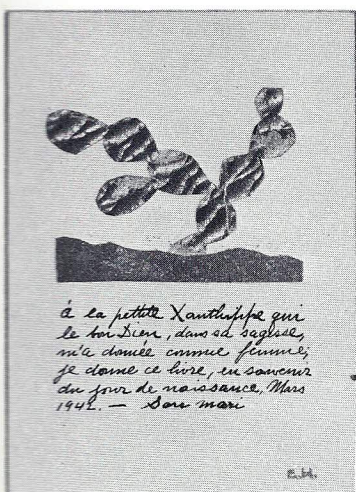 á la pettite Xanthippe qui
le bon Dien, dans sa sagesse,
m'a donnée comme femme;
je donne ce livre, en souvenir
du jour de naissance, Mars
1942. — Son mari
E.H.